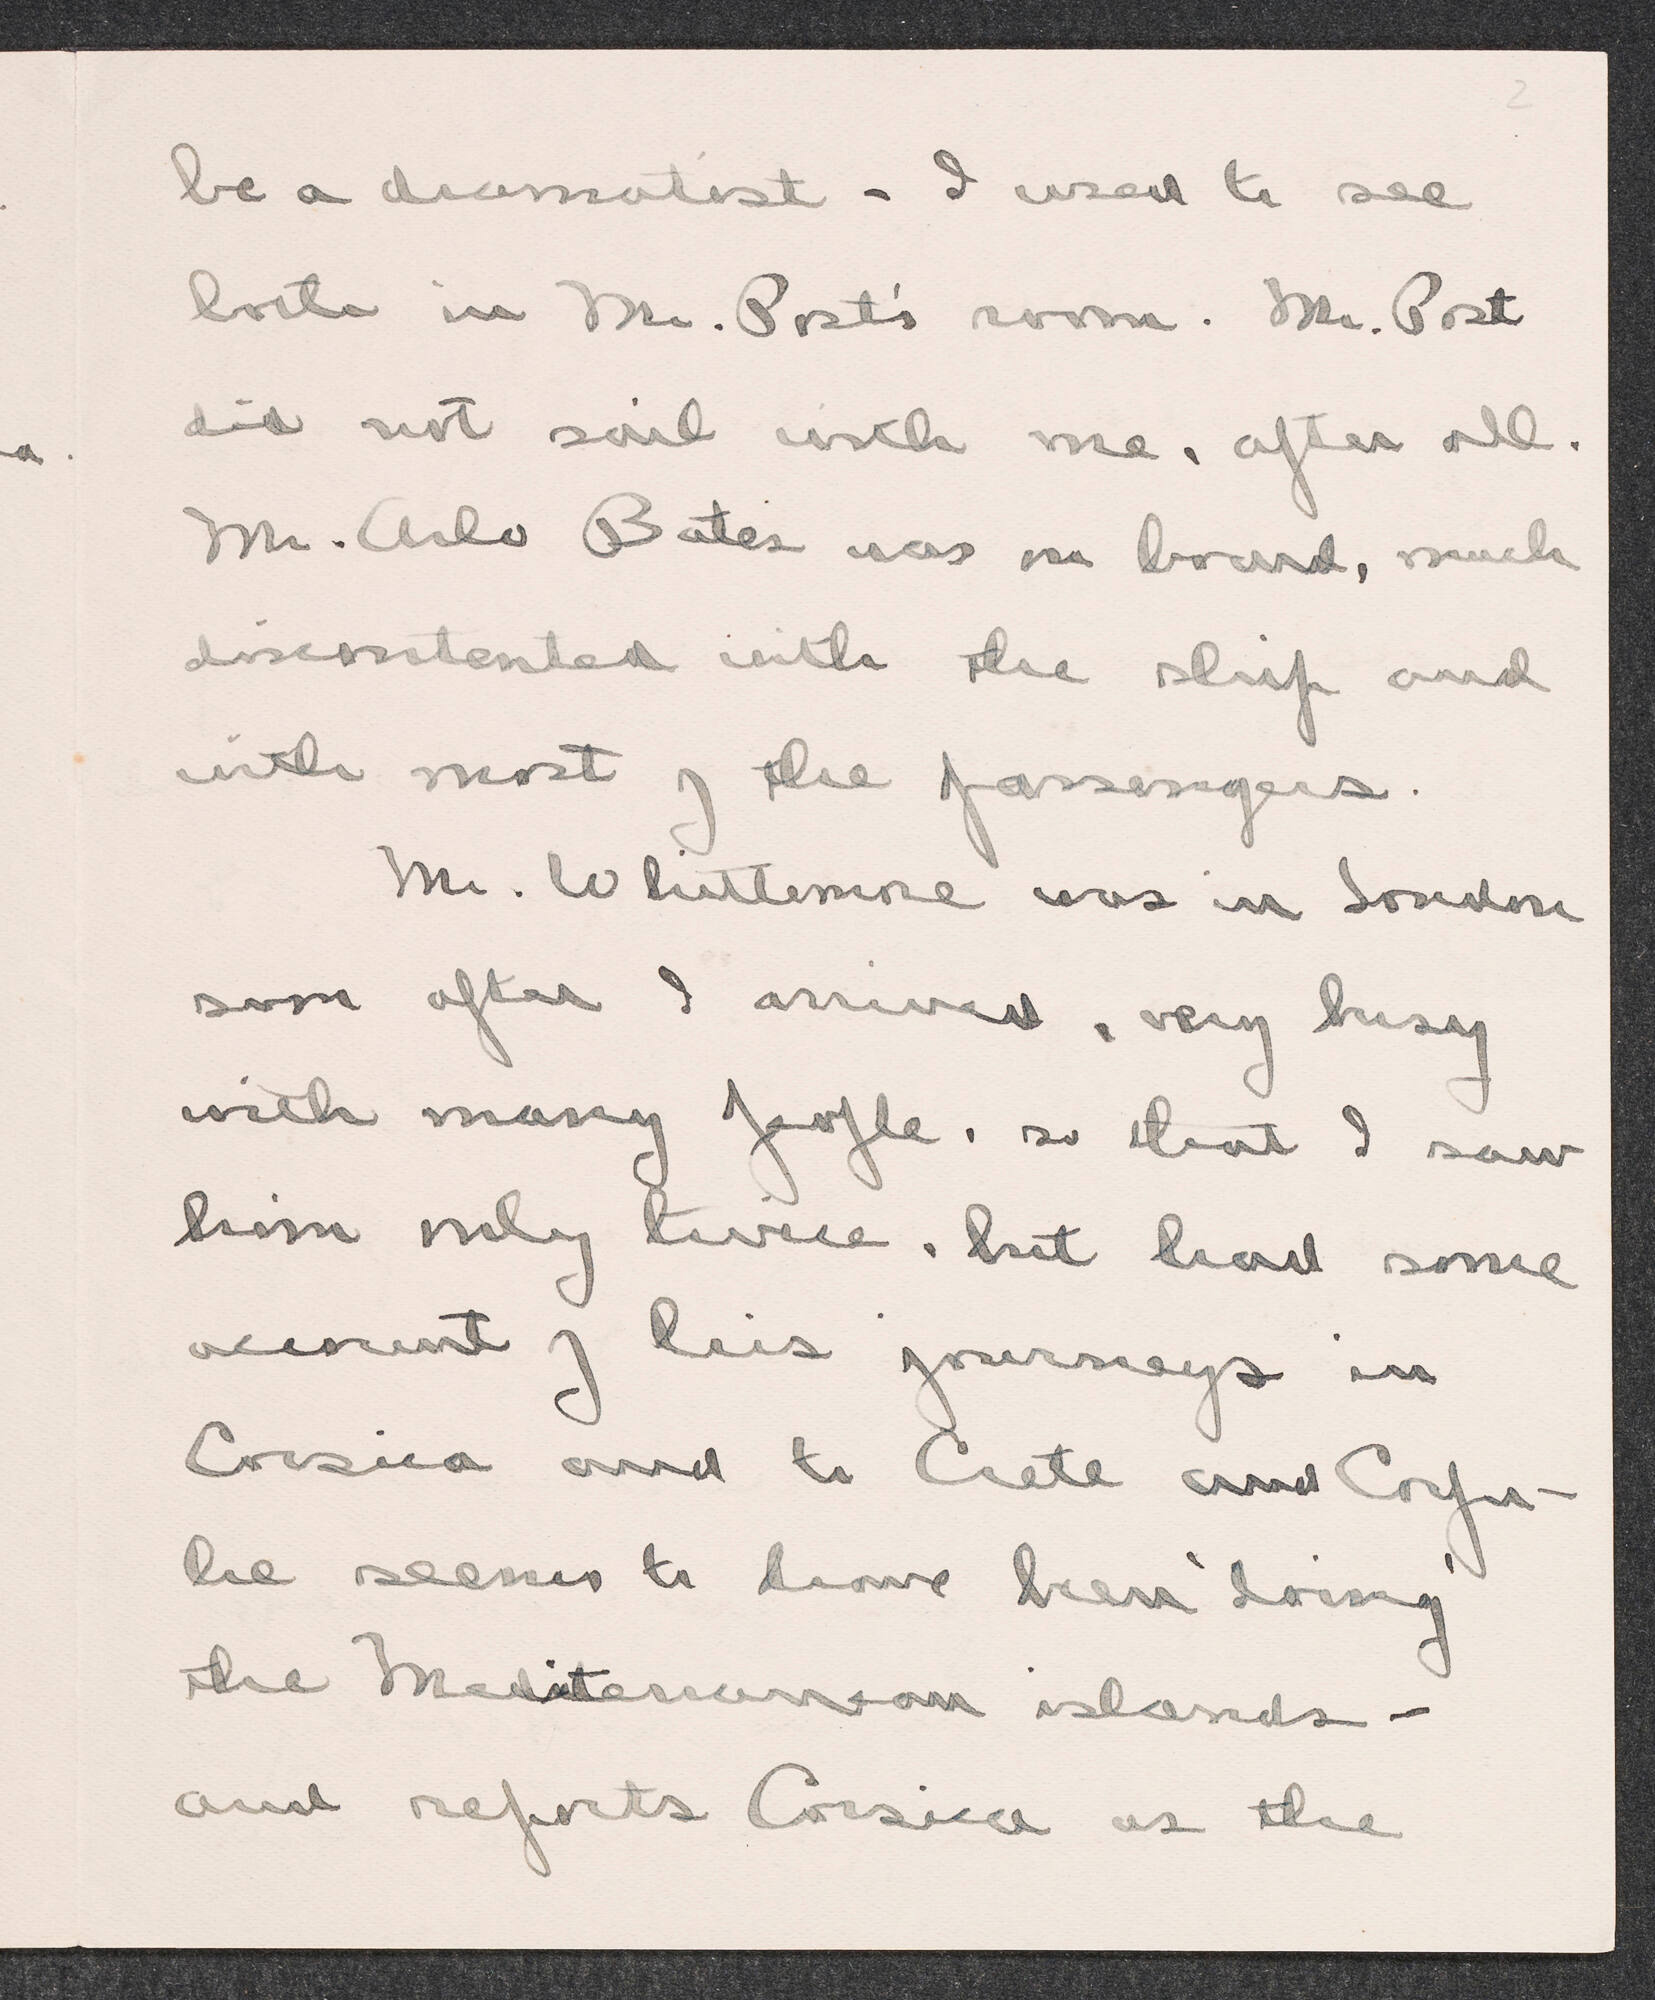 2
be a dramatist - I used to see
both in Mr. Post's room. Mr. Post
did not sail with me, after all.
Mr. Arlo Bates was on board, much
discontented with the ship and
with most of the passengers.
Mr. Whittemore was in London
soon after I arrived, very busy
with many people, so that I saw
him only twice, but had some
account of his journeys in
Corsica and to Crete and Corfu -
he seems to have been 'doing'
the Mediterranean islands -
and reports Corsica as the